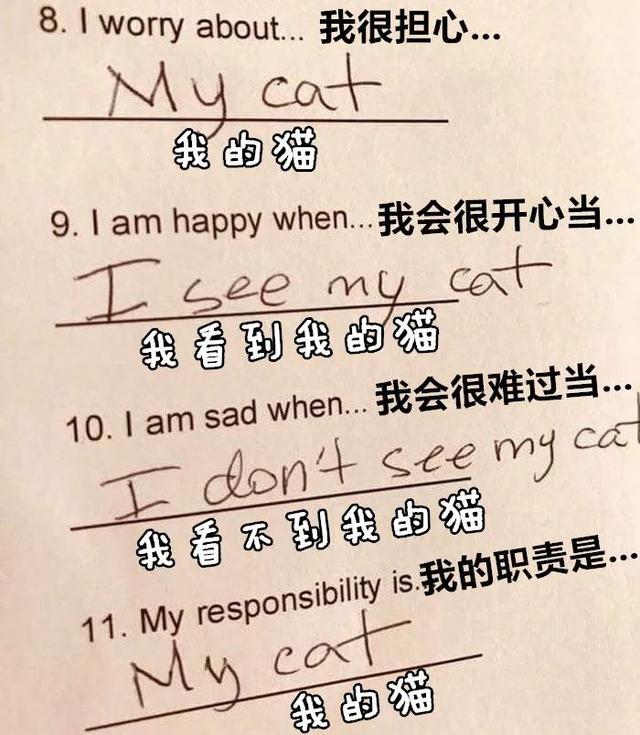 8. I worry about... 我很担心...
My cat
我的猫
9. I am happy when... 我会很开心当...
I see my cat
我看到我的猫
10. I am sad when... 我会很难过当...
I don't see my cat
我看不到我的猫
11. My responsibility is. 我的职责是...
My cat
我的猫